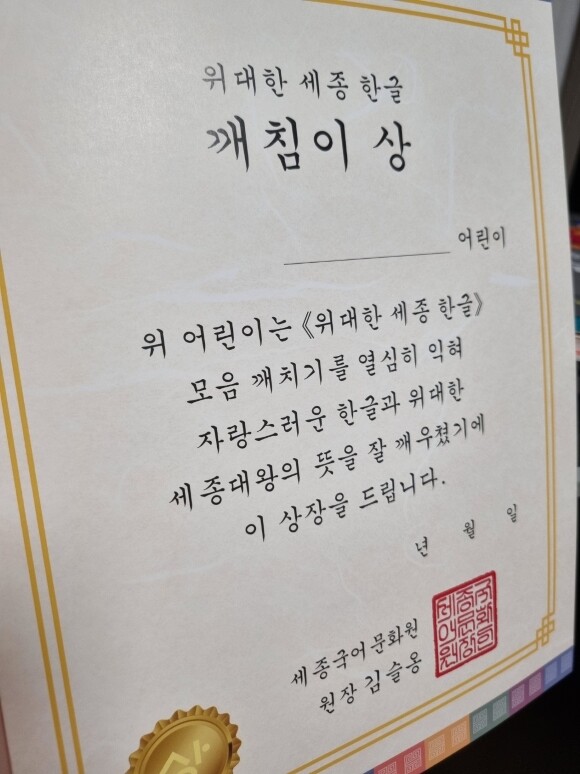 위대한 세종 한글
깨침이 상
어린이
위 어린이는 《위대한 세종 한글》
모음 깨치기를 열심히 익혀
자랑스러운 한글과 위대한
세종대왕의 뜻을 잘 깨우쳤기에
이 상장을 드립니다.
년 월 일
세종국어문화원
원장 김슬옹